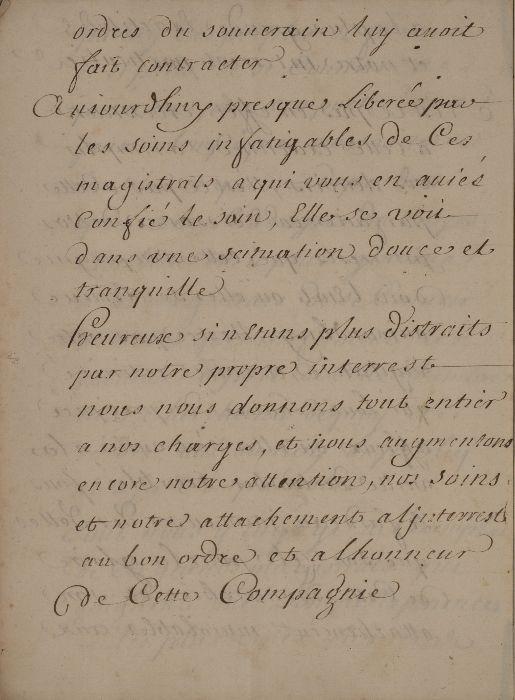 ordres du souverain luy avoit
fait contracter
Aujourdhuy presque Liberée par
les soins infatigables de Ces
magistrats a qui vous en aviés
Confié le soin, Elle se voit
dans vne scituation douce et
tranquille
heureux si netans plus distraits
par notre propre interrest
nous nous donnons tout entier
a nos charges, et nous augmentons
encore notre attention, nos soins
et notre attachement a linterrest
au bon ordre et a lhonneur
de Cette Compagnie